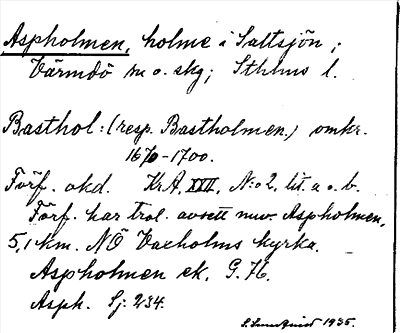 Aspholmen, holme i Saltsjön;
Värmdö sn o. skg; Sthlms l.
Basthol: (resp. Bastholmen.) omkr.
1670-1700.
Förf. okd. KrA, XXII, N:o 2, lit. a o. b.
Förf. har trol. avsett nuv. Aspholmen,
5,1 km. NÖ Vaxholms kyrka.
Aspholmen ek. G. 76.
Asph. Sj: 234.
1935.